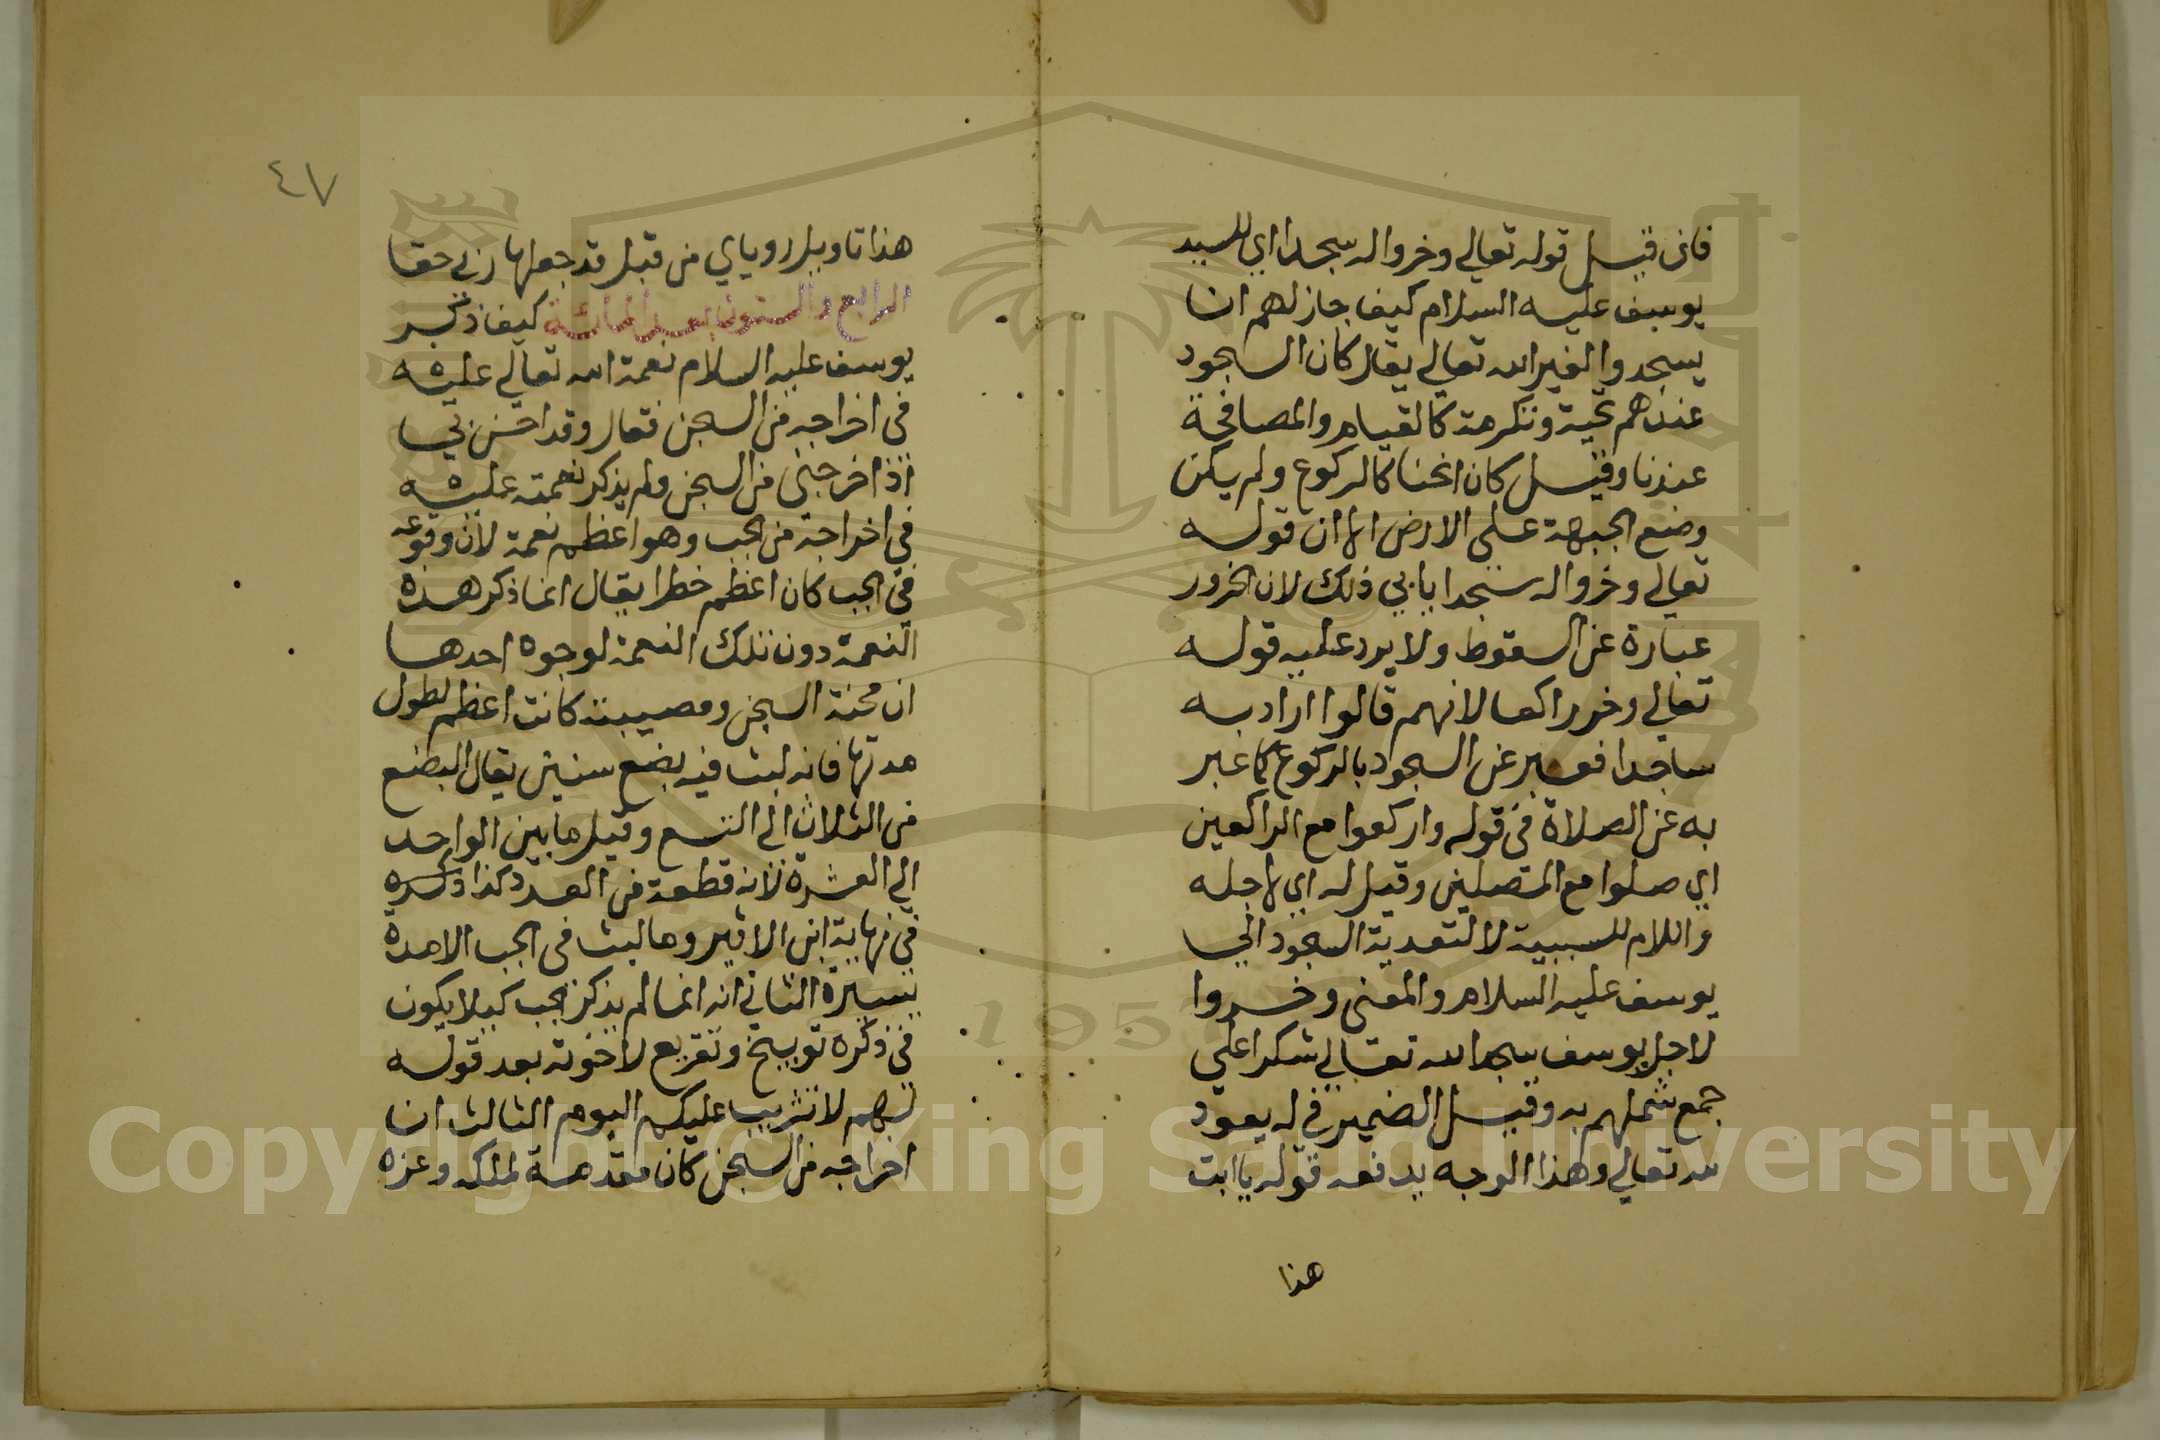 فان قيل قوله تعالي وخروا له سجدا اي للسيد
يوسف عليه السلام كيف جاز لهم ان
يسجدوا لغير الله تعالي يقال كان السجود
عندهم تحية وتكرمة كالقيام والمصافحة
عندنا وقيل كان انحنا كالركوع ولم يكن
وضع الجبهة علي الارض الا ان قوله
تعالي وخروا له سجدا يابي ذلك لان الخرور
عبارة عن السقوط ولا يرد عليه قوله
تعالي وخر راكعا لانهم قالوا اراد به
ساجدا فعبر عن السجود بالركوع كما عبر
به عن الصلاة في قوله واركعوا مع الراكعين
اي صلوا مع المصلين وقيل له اي لاجله
واللام للسببية لا لتعدية السجود الي
يوسف عليه السلام والمعنى وخروا
لاجل يوسف سجدا لله تعالي شكرا علي
جمع شملهم به وقيل الضمير في له يعود
لله تعالي وهذا الوجه يدفعه قوله يا ابت
هذا
٤٧
هذا تاويل روياي من قبل قد جعلها ربي حقا
الرابع والستون بعد المائة كيف ذكر
يوسف عليه السلام نعمة الله تعالي عليه
في اخراجه من السجن فقال وقد احسن بي
اذ اخرجني من السجن ولم يذكر نعمته عليه
في اخراجه من الجب وهو اعظم نعمة لان وقوعه
في الجب كان اعظم خطرا يقال انما ذكر هذه
النعمة دون تلك النعمة لوجوه احدها
ان محنة السجن ومصيبته كانت اعظم لطول
مدتها فانه لبث فيه بضع سنين يقال البضع
من الثلاث الي التسع وقيل ما بين الواحد
الي العشرة لانه قطعة من العدد كذا ذكره
في نهاية ابن الاثير وما لبث في الجب الا مدة
يسيرة الثاني انه انما لم يذكر الجب كيلا يكون
في ذكره توبيخ وتقريع لاخوته بعد قوله
لهم لا تثريب عليكم اليوم الثالث ان
اخراجه من السجن كان مقدمة لملكه وعزه
Copyright © King Saud University
195